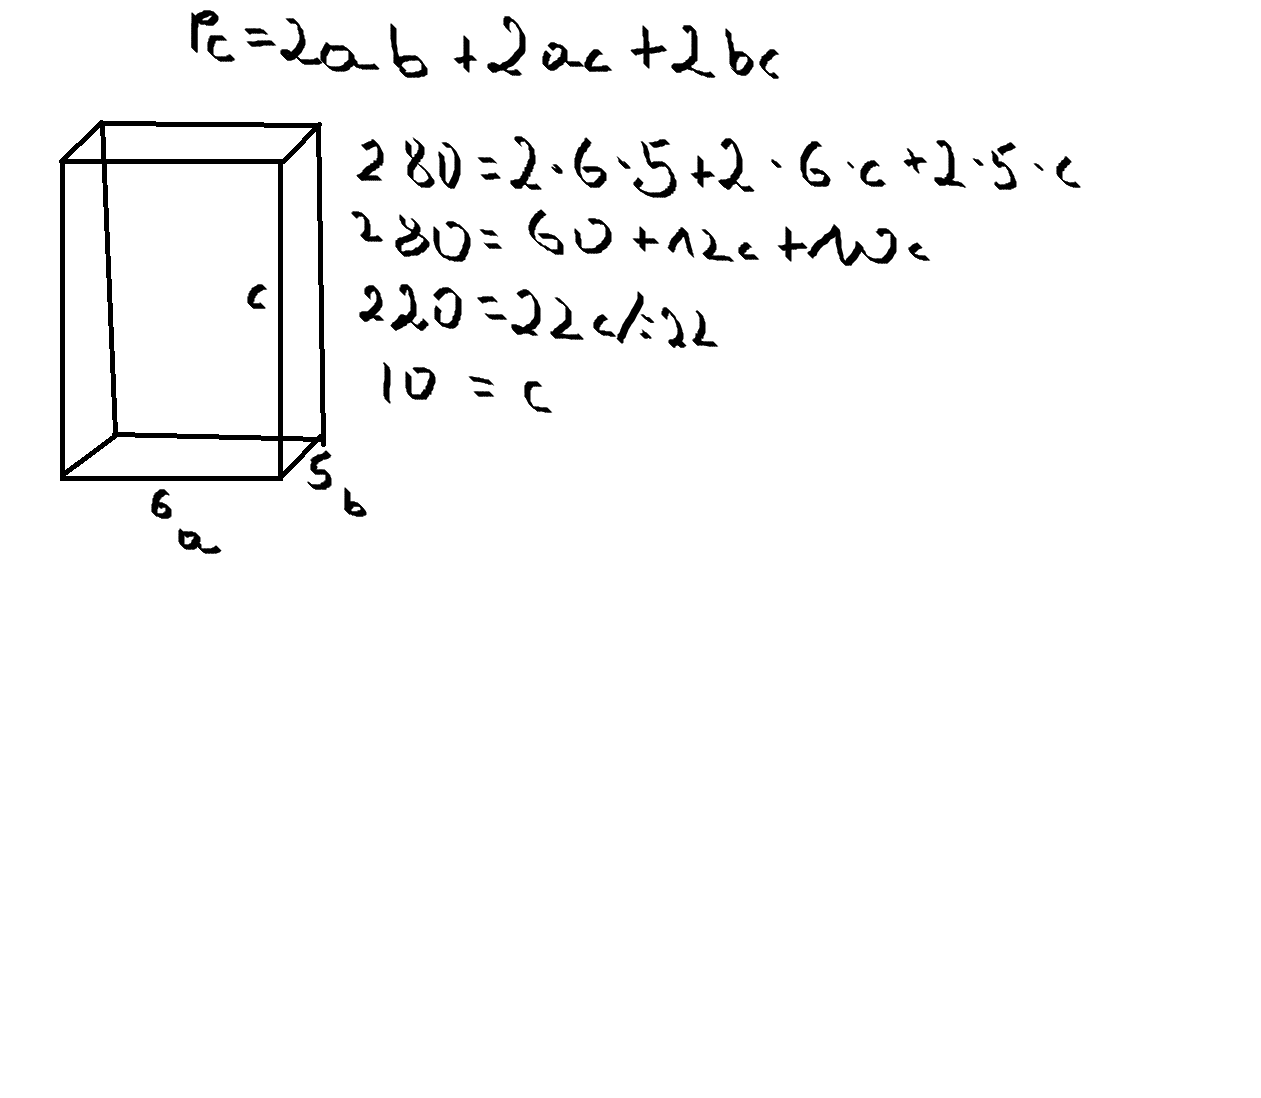 Pc = 2ab + 2ac + 2bc
280 = 2·6·5 + 2·6·c + 2·5·c
280 = 60 + 12c + 10c
220 = 22c /:22
10 = c
c
5
b
6
a